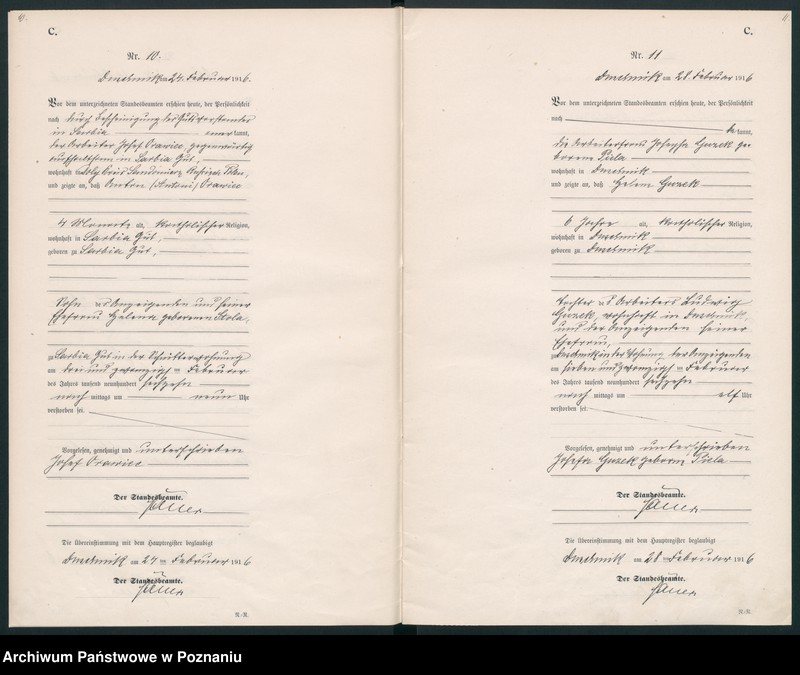 C.
Nr. 10.
am 24. Februar 1916.
Vor dem unterzeichneten Standesbeamten erschien heute, der Persönlichkeit
nach durch Bescheinigung des Gutsvorstandes
in Sarbia anerkannt,
der Arbeiter Josef Orawiec, gegenwärtig
aufhaltsam in Sarbia Gut,
wohnhaft in Kreis
und zeigte an, daß Anton (Antoni) Orawiec
4 Monate alt, katholischer Religion,
wohnhaft in Sarbia Gut,
geboren zu Sarbia Gut,
Sohn des Anzeigenden und seiner
Ehefrau Helena geborenen
zu Sarbia Gut in der Schnitterwohnung
am drei und zwanzigsten Februar
des Jahres tausend neunhundert sechzehn
nachmittags um neun Uhr
verstorben sei.
Vorgelesen, genehmigt und unterschrieben
Josef Orawiec
Der Standesbeamte.
Die Übereinstimmung mit dem Hauptregister beglaubigt
am 24 ten Februar 1916
Der Standesbeamte.
R.-R.
C.
Nr. 11
am 28. Februar 1916
Vor dem unterzeichneten Standesbeamten erschien heute, der Persönlichkeit
nach
bekannt,
die Arbeiterfrau Josepha Guzek ge
borene Piela
wohnhaft in
und zeigte an, daß Helene Guzek
6 Jahre alt, katholischer Religion,
wohnhaft in
geboren zu
Tochter des Arbeiters Ludwig
Guzek, wohnhaft in
und der Anzeigenden seiner
Ehefrau,
zu in der Wohnung der Anzeigenden
am sieben und zwanzigsten Februar
des Jahres tausend neunhundert sechzehn
nachmittags um elf Uhr
verstorben sei.
Vorgelesen, genehmigt und unterschrieben
Josefa Guzek geborene Piela
Der Standesbeamte.
Die Übereinstimmung mit dem Hauptregister beglaubigt
am 28 ten Februar 1916
Der Standesbeamte.
R.-R.
Archiwum Państwowe w Poznaniu